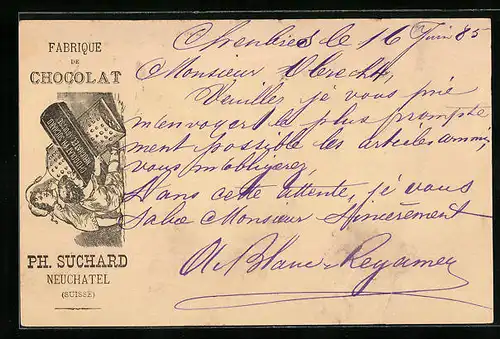 FABRIQUE
DE
CHOCOLAT
PH. SUCHARD
NEUCHATEL
(SUISSE)
le 16 Juin 85
Monsieur Obrecht,
Veuillez je vous prie
m'envoyer le plus prompte
ment possible les articles
vous m'obligerez,
Dans cette attente, je vous
salue Monsieur Sincèrement
A. Blanc-Regamey